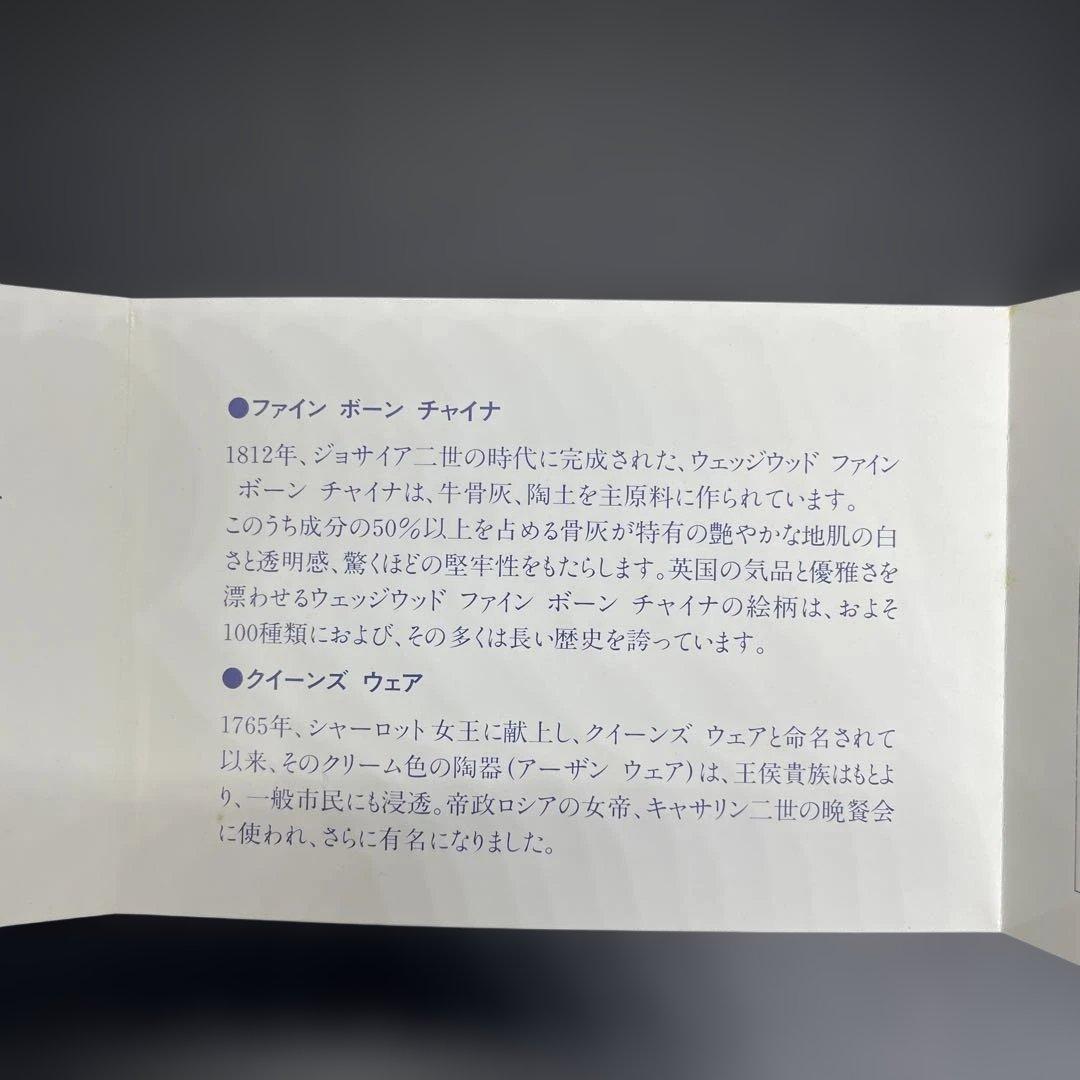 ●ファイン ボーン チャイナ
1812年、ジョサイア二世の時代に完成された、ウェッジウッド ファイン
ボーン チャイナは、牛骨灰、陶土を主原料に作られています。
このうち成分の50%以上を占める骨灰が特有の艶やかな地肌の白
さと透明感、驚くほどの堅牢性をもたらします。英国の気品と優雅さを
漂わせるウェッジウッド ファイン ボーン チャイナの絵柄は、およそ
100種類におよび、その多くは長い歴史を誇っています。
●クイーンズ ウェア
1765年、シャーロット女王に献上し、クイーンズ ウェアと命名されて
以来、そのクリーム色の陶器(アーザン ウェア)は、王侯貴族はもとよ
り、一般市民にも浸透。帝政ロシアの女帝、キャサリン二世の晩餐会
に使われ、さらに有名になりました。